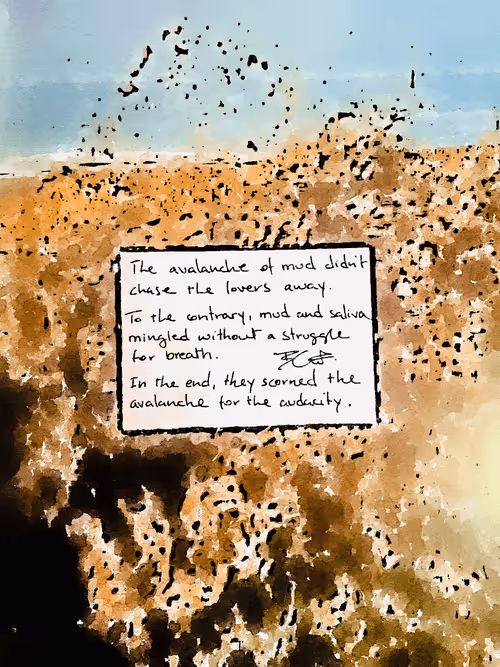 The avalanche of mud didn't
chase the lovers away.
To the contrary, mud and saliva
mingled without a struggle
for breath.
In the end, they scorned the
avalanche for the audacity.